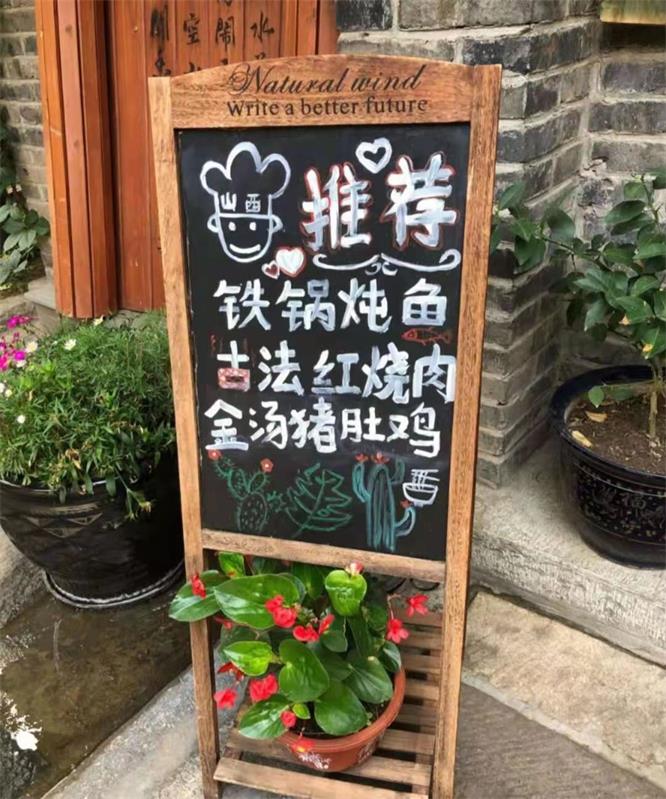 Natural wind
Write a better future
山西
推荐
铁锅炖鱼
古法红烧肉
金汤猪肚鸡